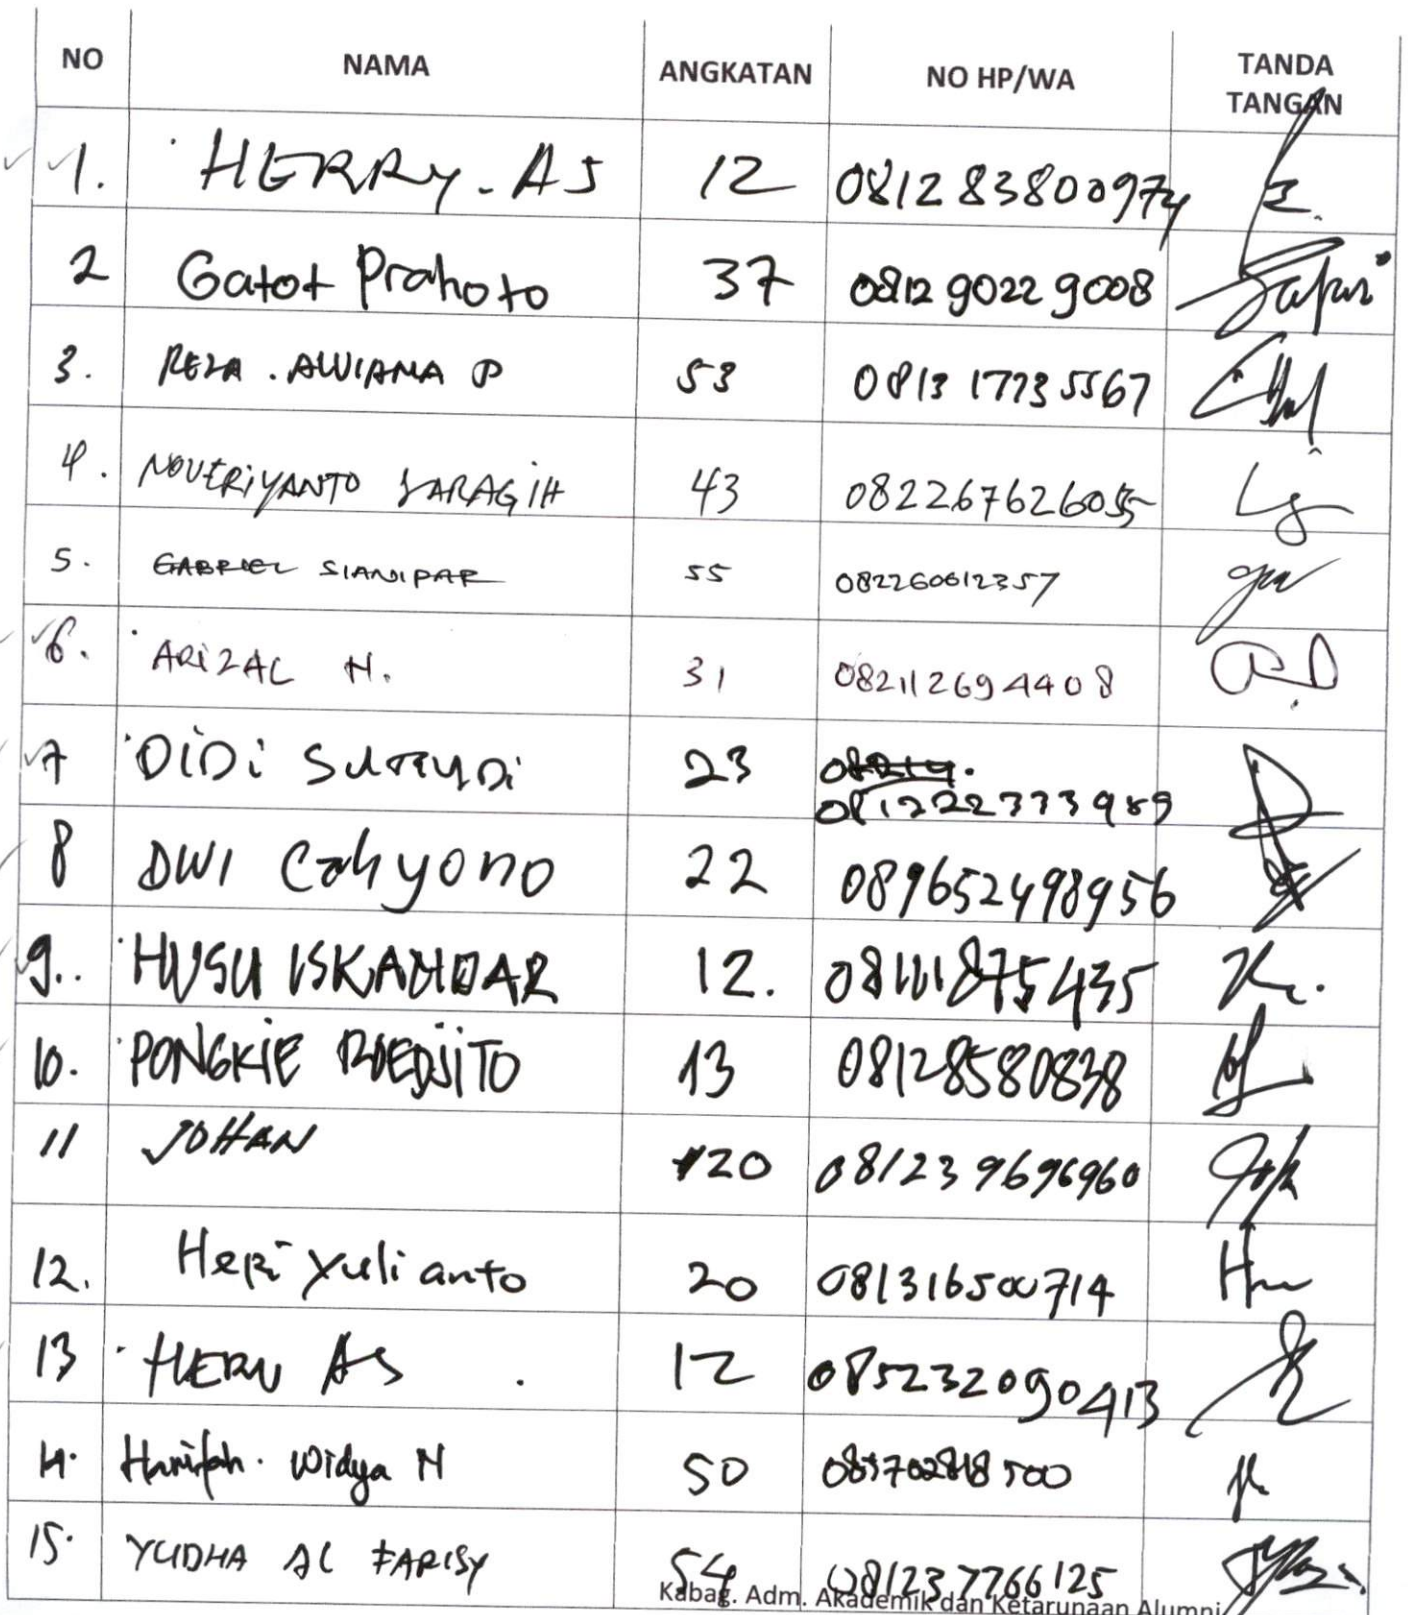 NO NAMA ANGKATAN NO HP/WA TANDA TANGAN
1. HERRY. AS 12 081283800974
2 Gatot Prahoto 37 081290229008
3. REZA . ALVIANA P 53 081317735567
4. NOVERIYANTO SARAGIH 43 082267626055
5. GABRIEL SIANIPAR 55 082260612357
6. ARIZAL H. 31 082112694408
7 DIDI SURYADI 23
081222333989
8 DWI Cahyono 22 089652498956
9. HUSU ISKANDAR 12. 08111875435
10. PONGKIE ROEDJITO 13 08128580838
11 JOHAN 20 081239696960
12. Heri Yulianto 20 081316500714
13 HERU AS 12 085232090413
14. Hanifah. Widya N 50
15. YUDHA AL FARISY 54 081237766125
Kabag. Adm. Akademik dan Ketarunaan Alumni